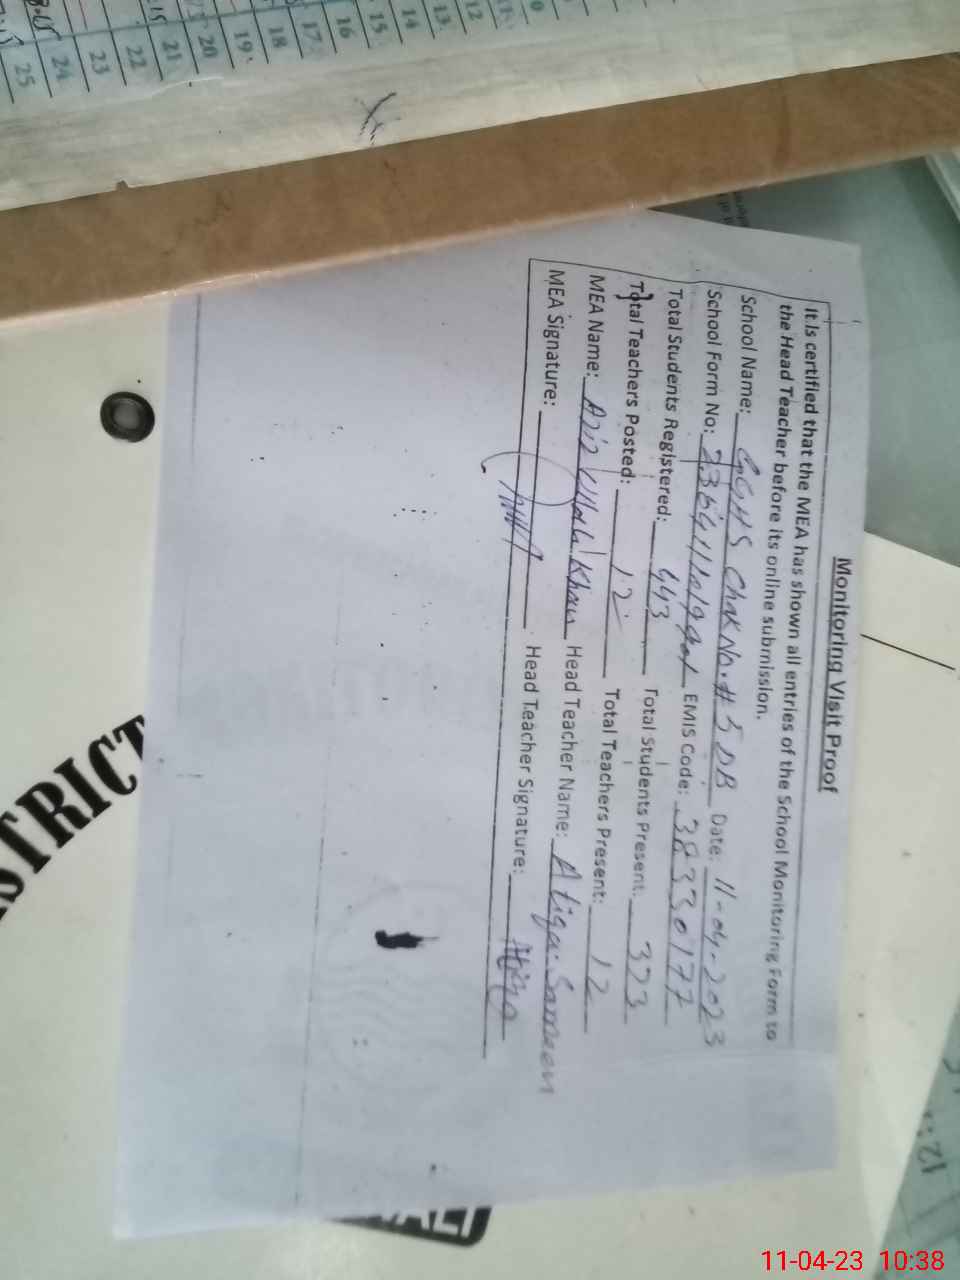 Monitoring Visit Proof
It is certified that the MEA has shown all entries of the School Monitoring Form to
the Head Teacher before its online submission.
School Name: GGHS Chak No. # 5 DB Date: 11-04-2023
School Form No: EMIS Code: 38330177
Total Students Registered: 443 Total Students Present: 373
Total Teachers Posted: 12 Total Teachers Present: 12
MEA Name: Aziz Ullah Khan Head Teacher Name: Atiqa Samreen
MEA Signature: Head Teacher Signature:
25 24 23 22 21 20 19 18 17 16 15 14 13 12
STRICT
11-04-23 10:38